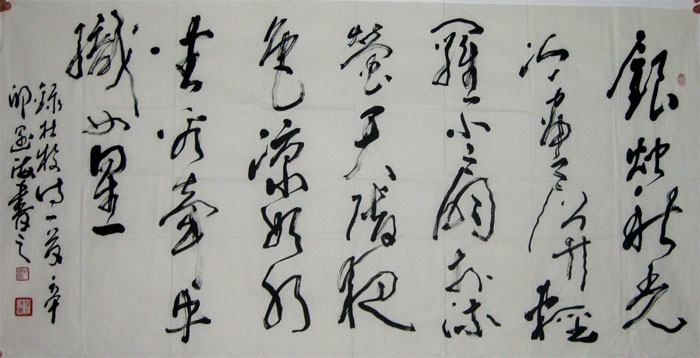 銀烛秋光
冷畫屏輕
羅小扇扑流
螢天階夜
色涼如水
坐看牽牛
織女星
錄杜牧诗一首辛
卯書之